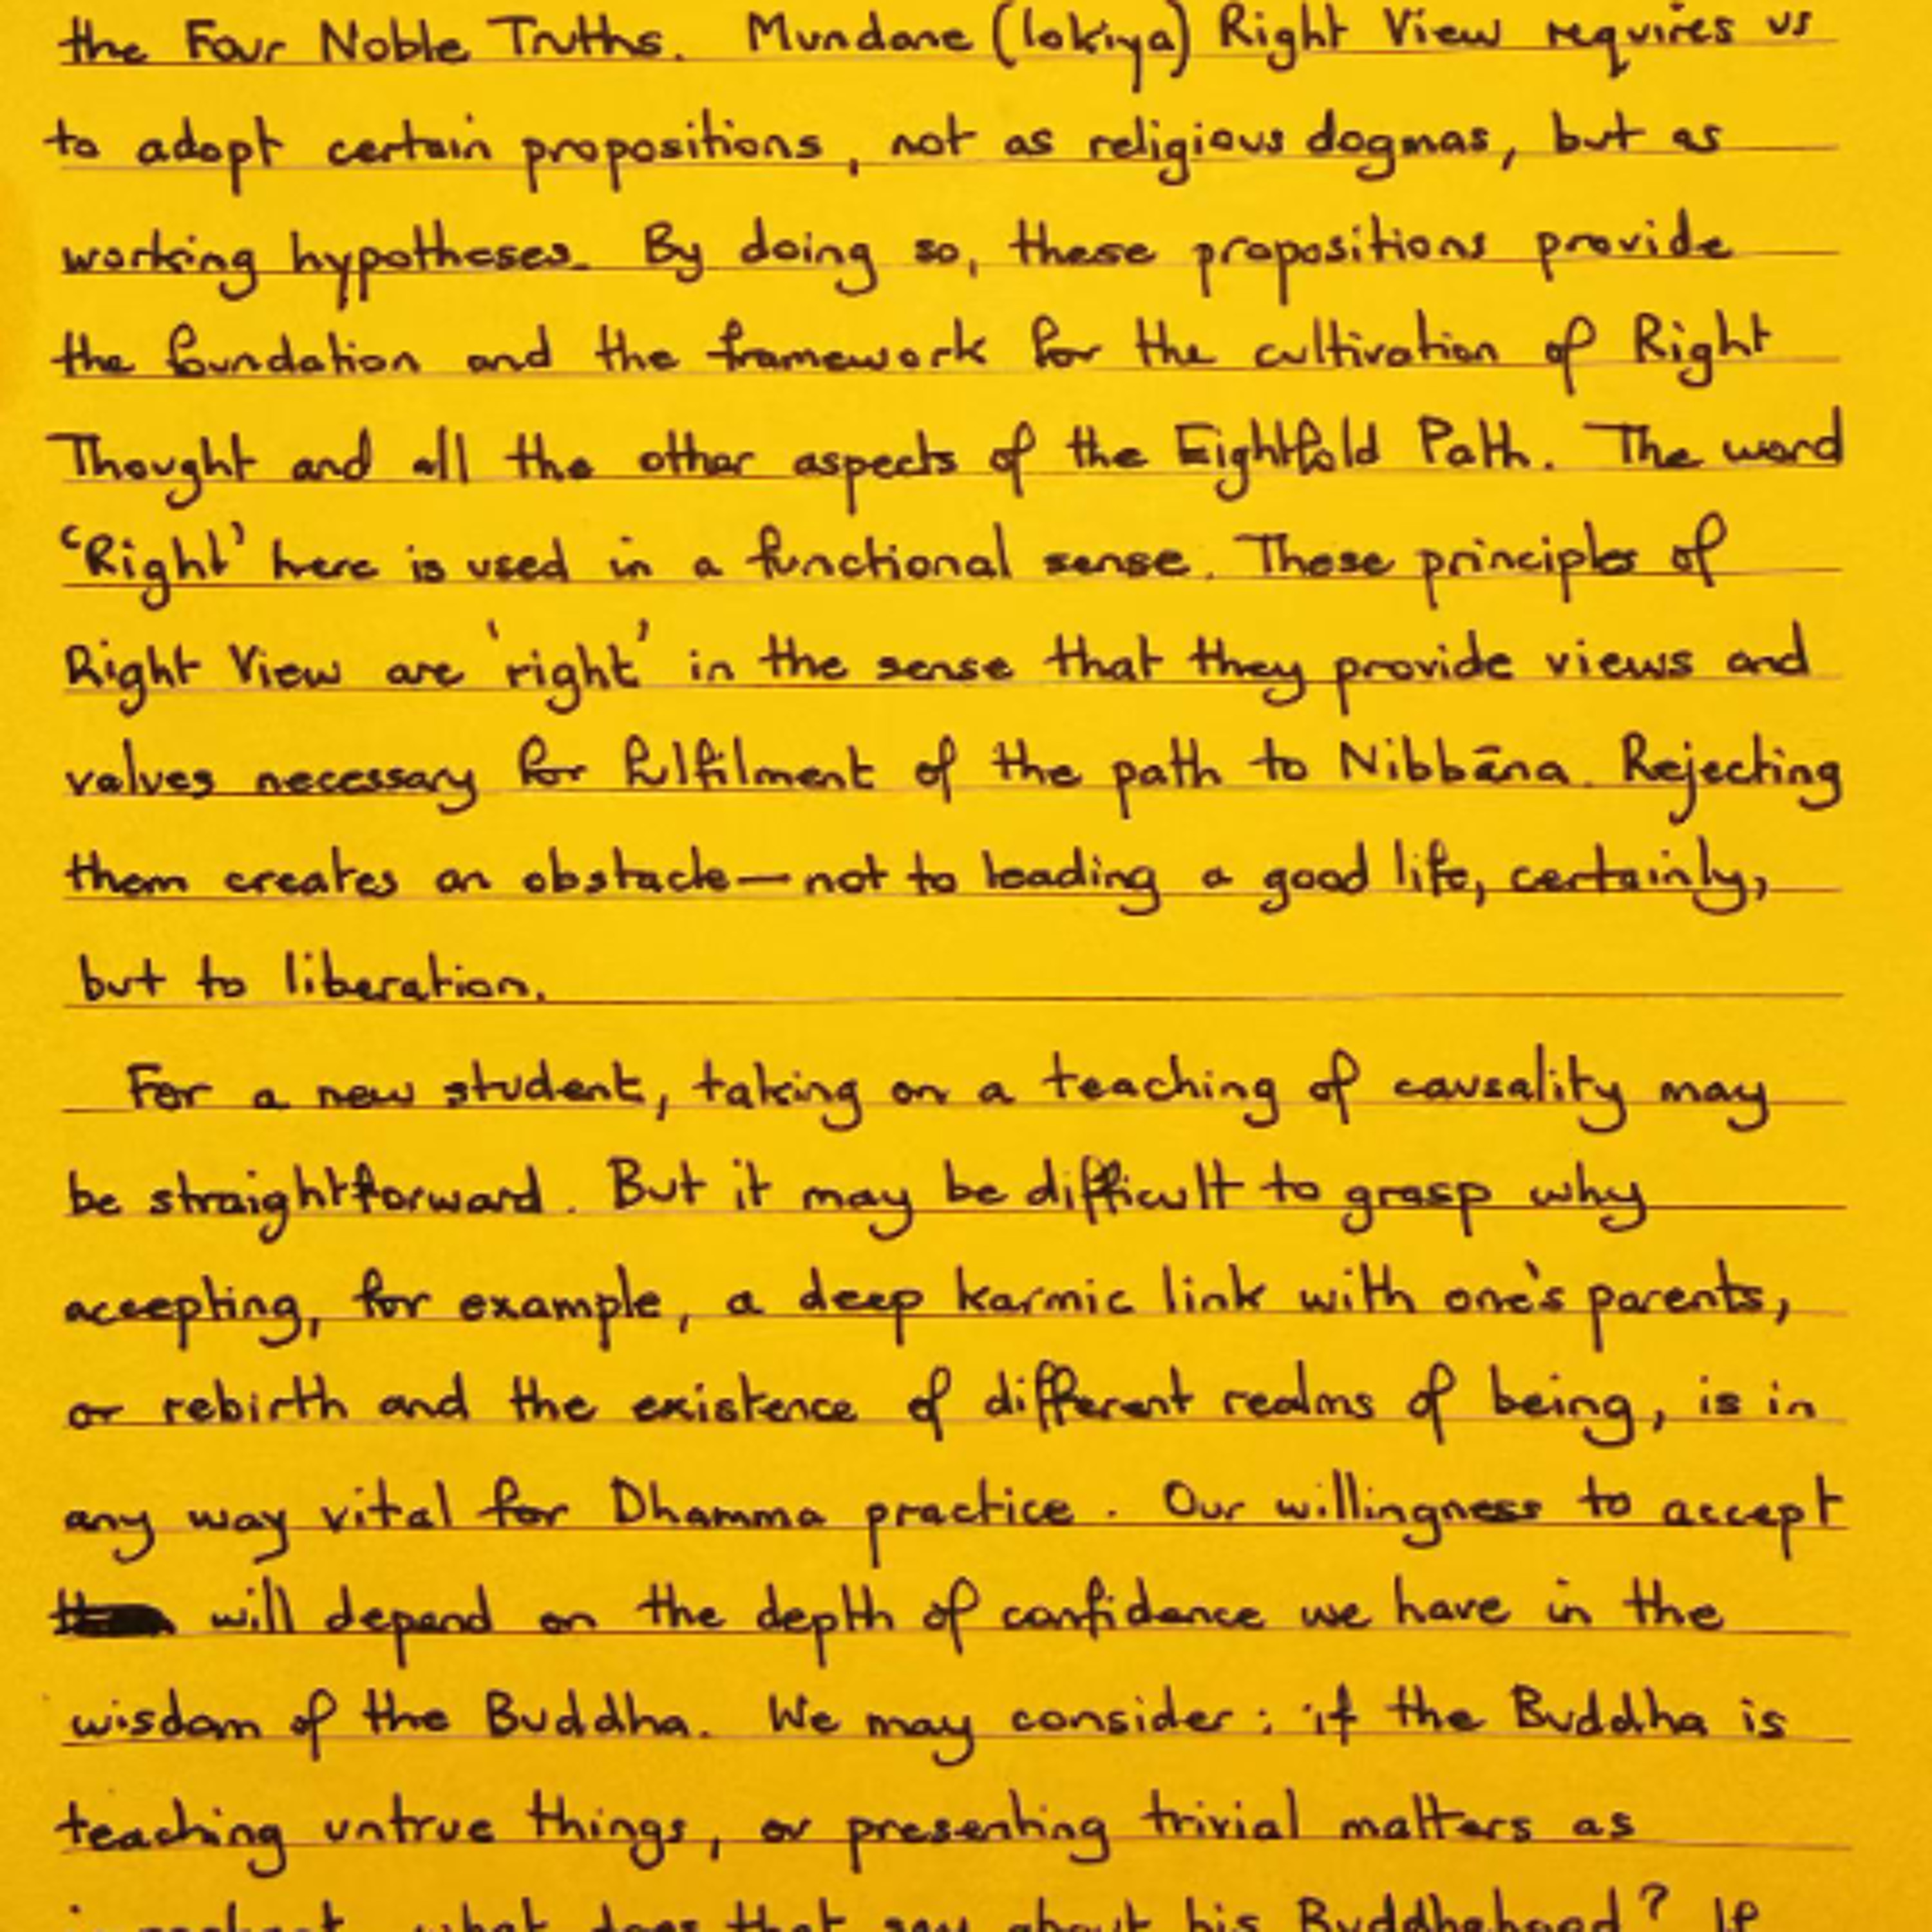 the Four Noble Truths. Mundane (lokiya) Right View requires us
to adopt certain propositions, not as religious dogmas, but as
working hypotheses. By doing so, these propositions provide
the foundation and the framework for the cultivation of Right
Thought and all the other aspects of the Eightfold Path. The word
‘Right’ here is used in a functional sense. These principles of
Right View are ‘right’ in the sense that they provide views and
values necessary for fulfilment of the path to Nibbāna. Rejecting
them creates an obstacle—not to leading a good life, certainly,
but to liberation.
For a new student, taking on a teaching of causality may
be straightforward. But it may be difficult to grasp why
accepting, for example, a deep karmic link with one's parents,
or rebirth and the existence of different realms of being, is in
any way vital for Dhamma practice. Our willingness to accept
will depend on the depth of confidence we have in the
wisdom of the Buddha. We may consider: if the Buddha is
teaching untrue things, or presenting trivial matters as
what does that say about his Buddhahood? If